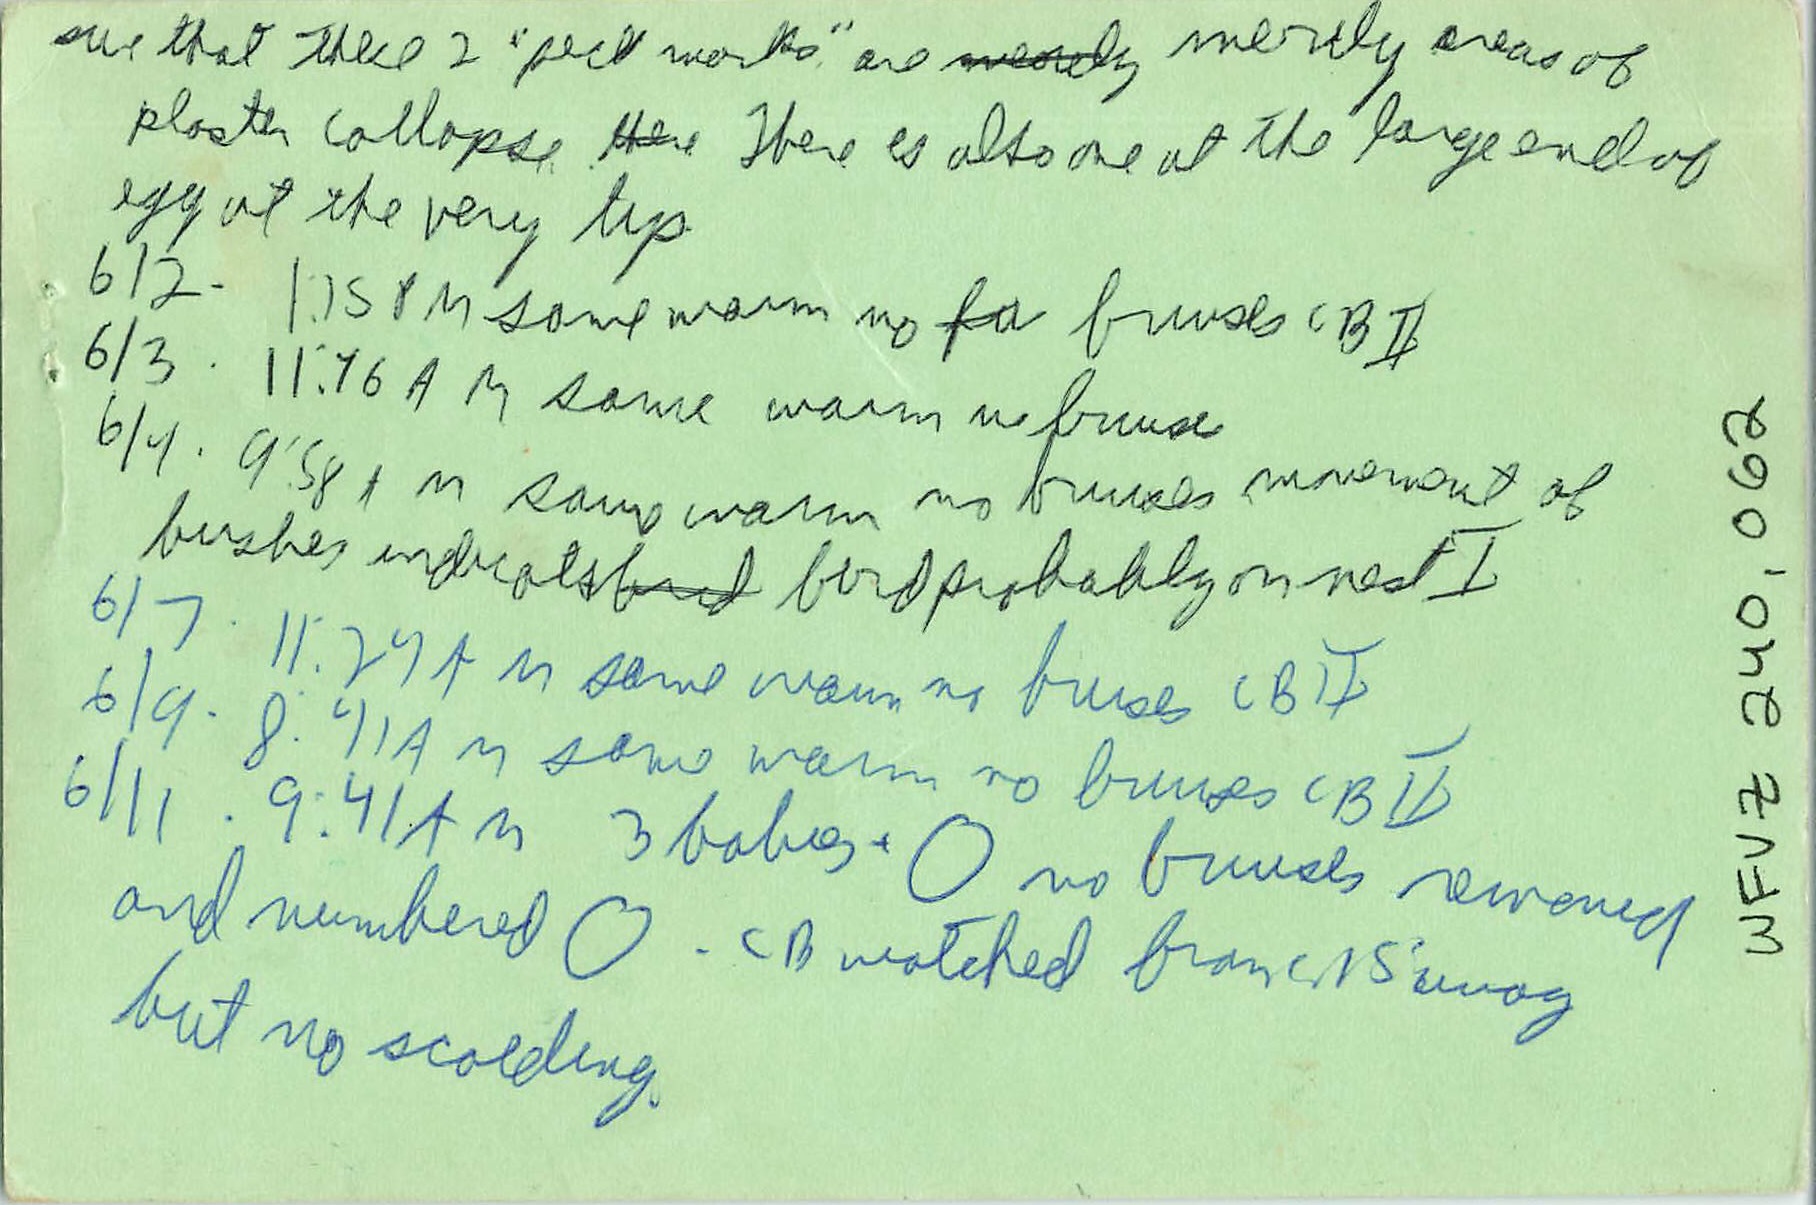 sure that these 2 "peck marks" are merely merely areas of
plaster collapse. There There is also one at the large end of
egg at the very tip
6/2- 1:15 PM same warm no bruises CB II
6/3. 11:46 AM same warm no bruise
6/4. 9:58 AM same warm no bruises movement of
bushes indicates bird bird probably on nest I
6/7. 11:24 AM same warm no bruises CB II
6/9. 8:41 AM same warm no bruises CB II
6/11. 9:41 AM 3 babies + O no bruises removed
and numbered O - CB watched branch sway
but no scolding.
WFVZ 240,062